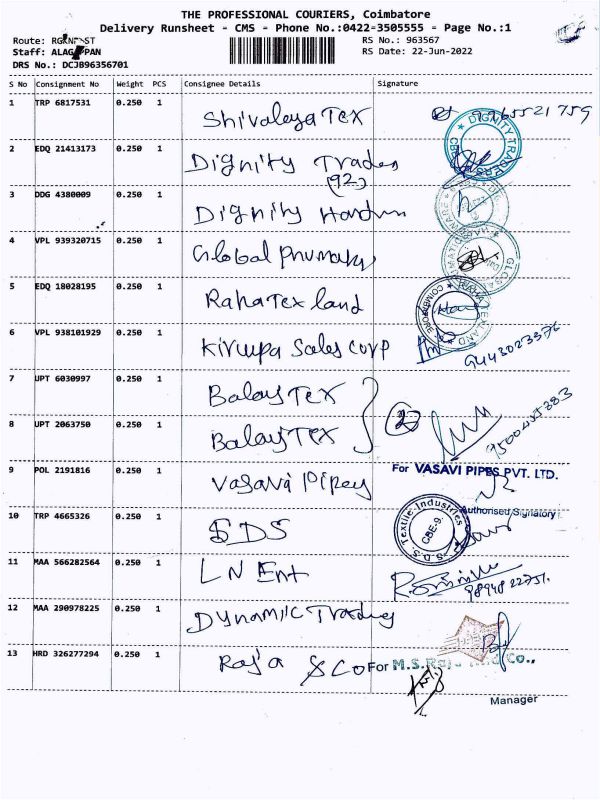 THE PROFESSIONAL COURIERS, Coimbatore
Delivery Runsheet - CMS - Phone No.:0422-3505555 - Page No.:1
Route:
RS No.: 963567
Staff:
RS Date: 22-Jun-2022
DRS No.: DCJB96356701
S No Consignment No Weight PCS Consignee Details Signature
1 TRP 6817531 0.250 1 Shivalaya Tex
2 EDQ 21413173 0.250 1 Dignity Trades
(92)
DIGNITY TRADERS
3 DDG 4380009 0.250 1 Dignity
4 VPL 939320715 0.250 1 Global
5 EDQ 18028195 0.250 1 Raha Tex land
RAHA TEXLAND
6 VPL 938101929 0.250 1 Kiruupa Sales Corp
9443023376
7 UPT 6030997 0.250 1 Balaji Tex
8 UPT 2063750 0.250 1 Balaji Tex
2
9 POL 2191816 0.250 1 Vasavi Pipes
For VASAVI PIPES PVT. LTD.
Authorised Signatory
10 TRP 4665326 0.250 1 SDS
S.D.S. Textile Industries
CBE-9.
11 MAA 566282564 0.250 1 L N Ent
9894822751.
12 MAA 290978225 0.250 1 Dynamic Trading
13 HRD 326277294 0.250 1 Raja & Co
For M.S. Co.,
Manager